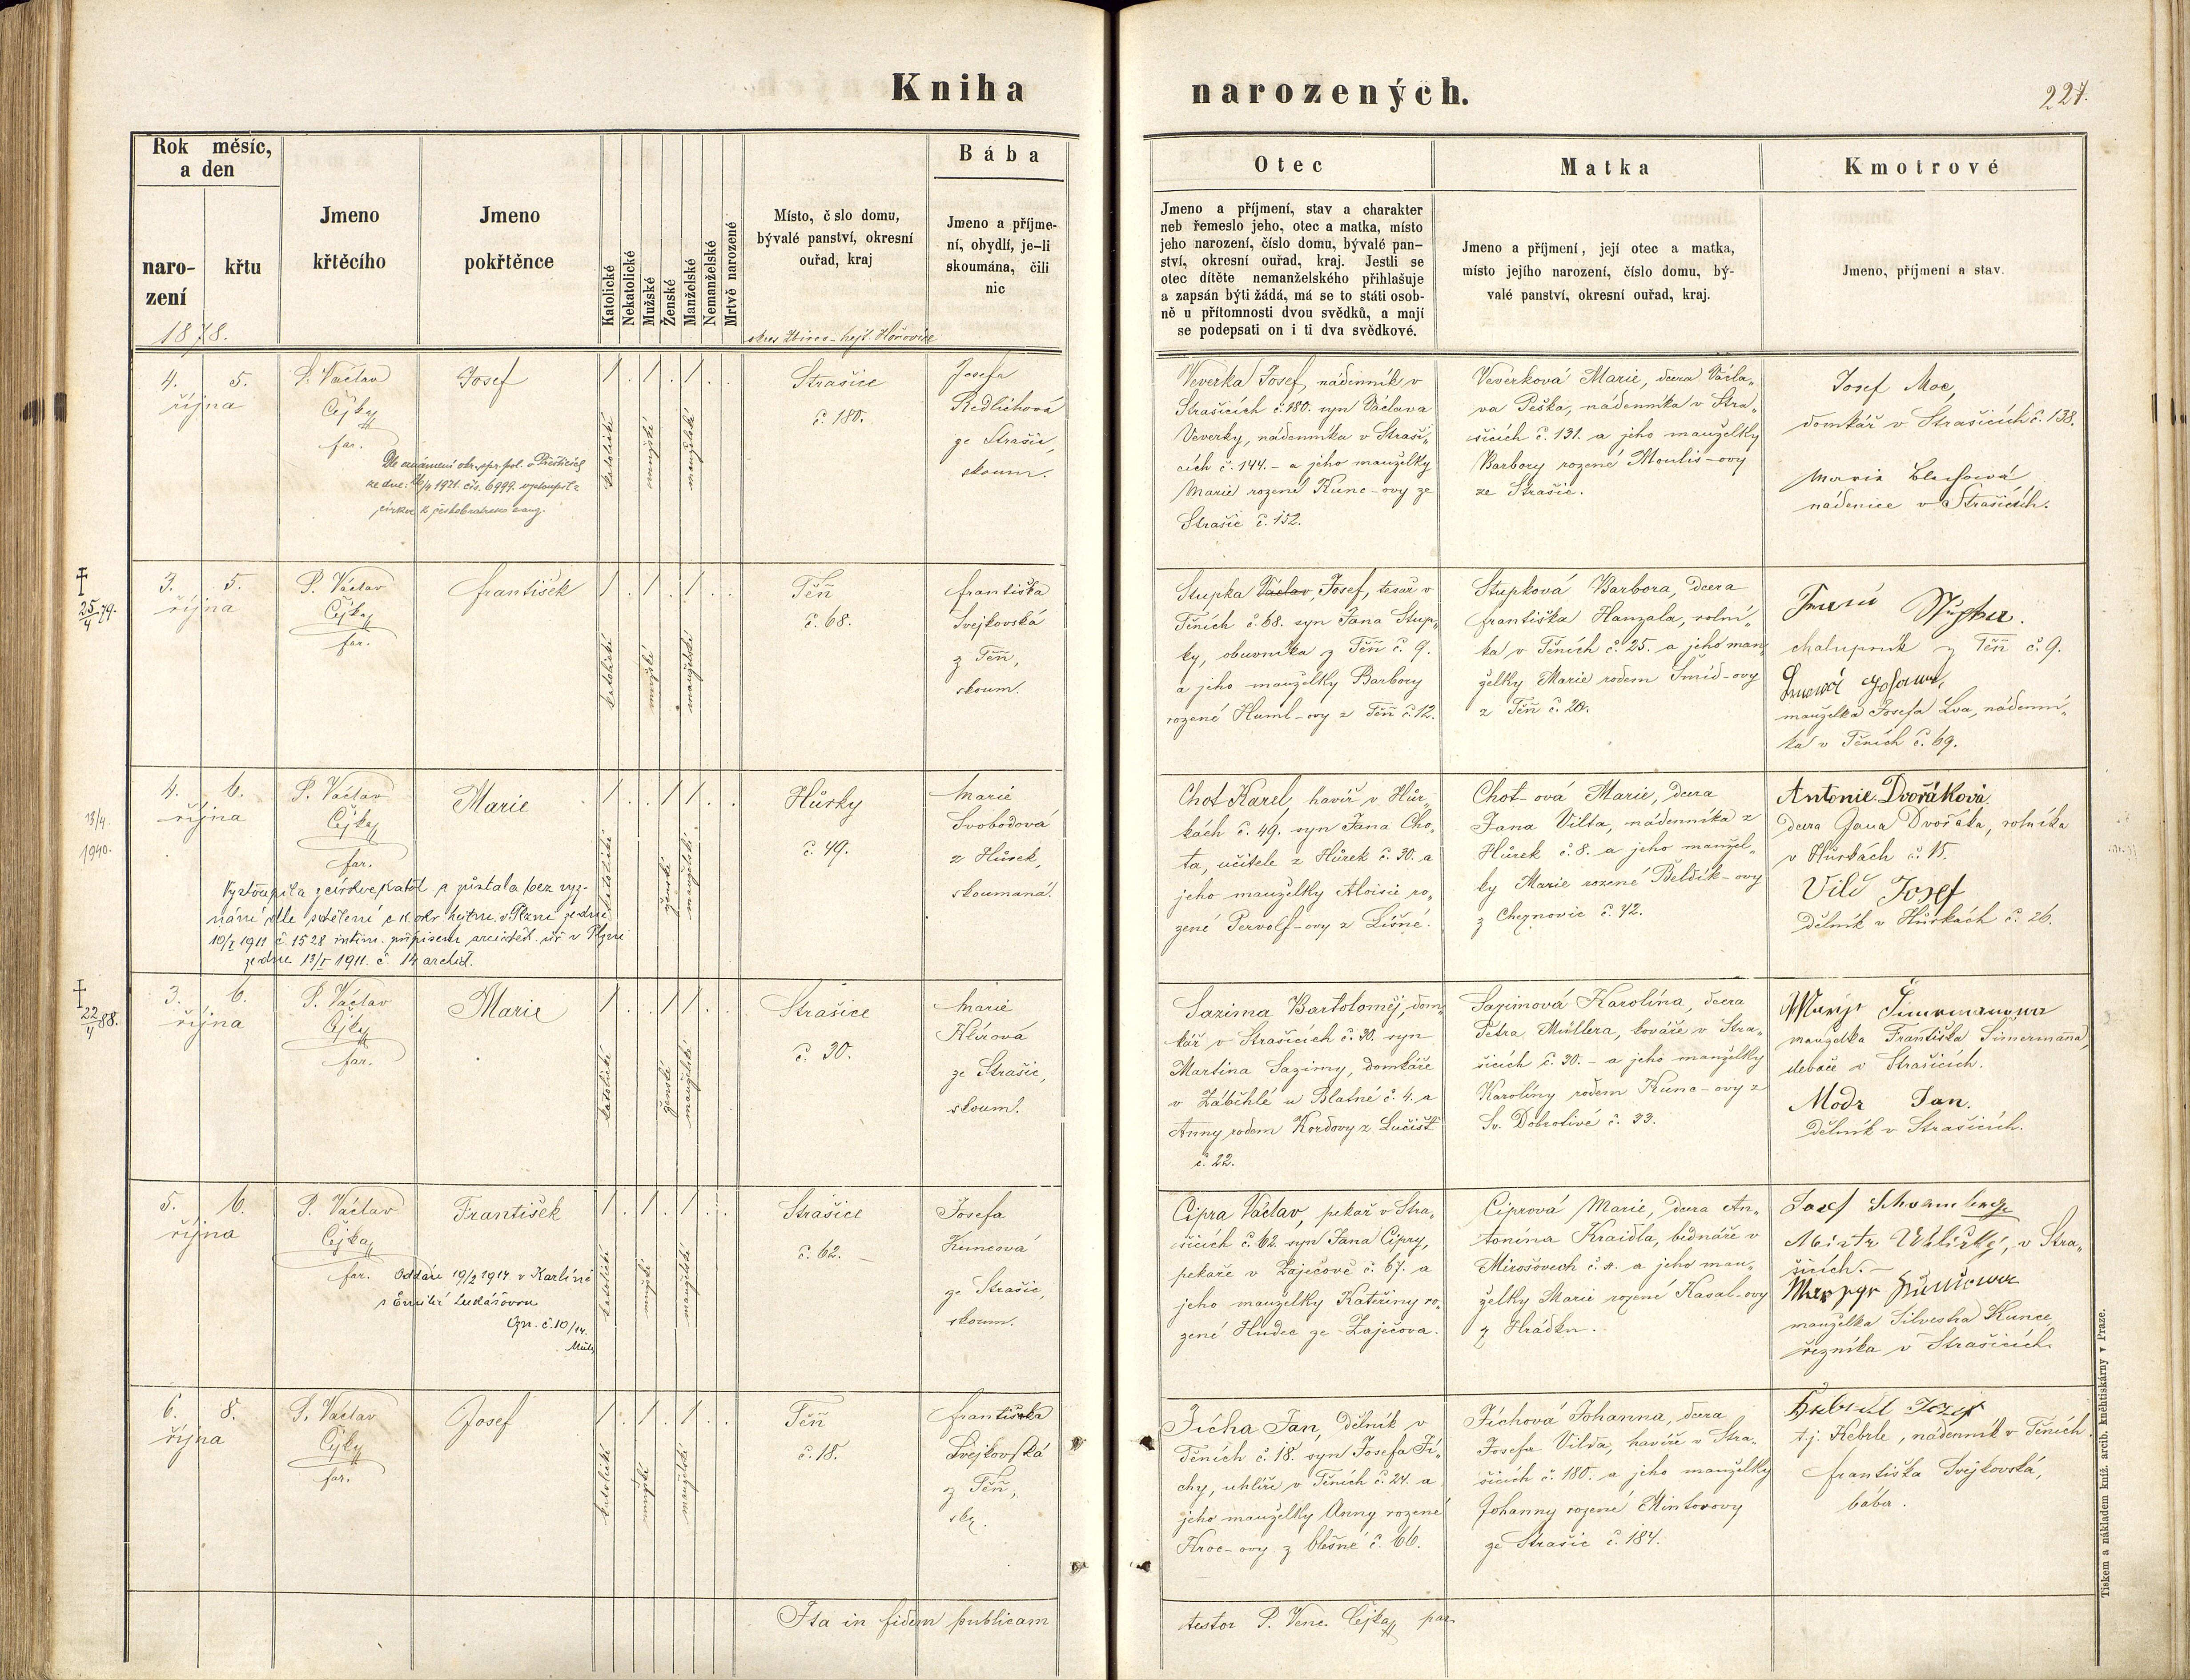 Kniha
narozených.
227.
Rok měsíc,
a den
naro-
zení
křtu
1878.
Jmeno
křtěcího
Jmeno
pokřtěnce
Katolické
Nekatolické
Mužské
Ženské
Manželské
Nemanželské
Mrtvě narozené
Místo, č slo domu,
bývalé panství, okresní
ouřad, kraj
Bába
Jmeno a příjme-
ní, obydlí, je-li
skoumána, čili
nic
Otec
Jmeno a příjmení, stav a charakter
neb řemeslo jeho, otec a matka, místo
jeho narození, číslo domu, bývalé pan-
ství, okresní ouřad, kraj. Jestli se
otec dítěte nemanželského přihlašuje
a zapsán býti žádá, má se to státi osob-
ně u přítomnosti dvou svědků, a mají
se podepsati on i ti dva svědkové.
Matka
Jmeno a příjmení, její otec a matka,
místo jejího narození, číslo domu, bý-
valé panství, okresní ouřad, kraj.
Kmotrové
Jmeno, příjmení a stav.
4. 5.
října
P. Václav
Čejka
far.
Josef
katolické
mužské
manželské
Strašice
č. 180.
Josefa
Redlichová
ze Strašic,
skoum.
Veverka Josef, nádenník v
Strašicích č. 180. syn Václava
Veverky, nádenníka v Straši„
cích č. 144. - a jeho manželky
Marie rozené Kunc-ovy ze
Strašic č. 152.
Veverková Marie, dcera Václa„
va Peška, nádenníka v Stra„
šicích č. 131. a jeho manželky
Barbory rozené Moulis-ovy
ze Strašic.
Josef Moc,
domkář v Strašicích č. 138.
Marie
nádenice v Strašicích.
† 25/4 79.
3. 5.
října
P. Václav
Čejka
far.
František
katolické
mužské
manželské
Těň
č. 68.
Františka
Svejkovská
z Těň,
skoum.
Stupka Václav, Josef, tesař v
Těních č. 68. syn Jana Stup„
ky, obuvníka z Těň č. 9.
a jeho manželky Barbory
rozené Huml-ovy z Těň č. 12.
Stupková Barbora, dcera
Františka Hanzala, rolní„
ka v Těních č. 25. a jeho man„
želky Marie rodem Šmíd-ovy
z Těň č. 20.
chalupník z Těň č. 9.
manželka Josefa Lva, nádenní„
ka v Těních č. 69.
13/4.
1940.
4. 6.
října
P. Václav
Čejka
far.
Marie
Vystoupila z církve katol. a zůstala bez vyz-
nání dle sdělení c. k. okr. hejtm. v Plzni ze dne
10/I 1911 č. 1528 intim. přípisem arciděk. úř. v Plzni
ze dne 13/I 1911. č. 14 archid.
katolické
ženské
manželské
Hůrky
č. 49.
Marie
Svobodová
z Hůrek,
skoumaná.
Chot Karel, havíř v Hůr„
kách č. 49. syn Jana Cho„
ta, učitele z Hůrek č. 30. a
jeho manželky Aloisie ro„
zené Pervolf-ovy z Líšné.
Chot-ová Marie, dcera
Jana Vilta, nádenníka z
Hůrek č. 8. a jeho manžel„
ky Marie rozené Beldík-ovy
z Cheznovic č. 42.
Antonie Dvořáková
dcera Jana Dvořáka, rolníka
v Hůrkách č. 15.
Vild Josef
dělník v Hůrkách č. 26.
† 22/4 88.
3. 6.
října
P. Václav
Čejka
far.
Marie
katolické
ženské
manželské
Strašice
č. 30.
Marie
Klírová
ze Strašic,
skoum.
Sazima Bartoloměj, dom„
kář v Strašicích č. 30. syn
Martina Sazimy, domkáře
v Záběhlé u Blatné č. 4. a
Anny rodem Kordovy z Lučišť
č. 22.
Sazimová Karolína, dcera
Petra Müllera, kováře v Stra„
šicích č. 30. - a jeho manželky
Karolíny rodem Kunc-ovy z
Sv. Dobrotivé č. 33.
manželka Františka Simermanna,
slevače v Strašicích.
Modr Jan.
dělník v Strašicích.
5. 6.
října
P. Václav
Čejka
far.
František
Oddán 19/2 1914 v Karlíně
s Emilií Lukášovou
č. 10/14.
katolické
mužské
manželské
Strašice
č. 62.
Josefa
Kuncová
ze Strašic,
skoum.
Cipra Václav, pekař v Stra„
šicích č. 62. syn Jana Cipry,
pekaře v Zaječově č. 67. a
jeho manželky Kateřiny ro„
zené Hudec ze Zaječova.
Ciprová Marie, dcera An„
tonína Kraidla, bednáře v
Mirošovech č. a jeho man„
želky Marie rozené Kasal-ovy
z Hrádku.
Josef
Mistr Uhlířský, v Stra„
šicích.
manželka Silvestra Kunce,
řezníka v Strašicích
6. 8.
října
P. Václav
Čejka
far.
Josef
katolické
mužské
manželské
Těň
č. 18.
Františka
Svejkovská
z Těň,
sk.
Jícha Jan, dělník v
Těních č. 18. syn Josefa Jí„
chy, uhlíře v Těních č. 24. a
jeho manželky Anny rozené
Kroc-ovy z Olešné č. 66.
Jíchová Johanna, dcera
Josefa Vilda, havíře v Stra„
šicích č. 180. a jeho manželky
Johanny rozené Mintorovy
ze Strašic č. 184.
t. j. Kebrle, nádenník v Těních
Františka Svejkovská,
bába.
Ita in fidem publicam
testor P. Venc. Čejka par.
Tiskem a nákladem kníž. arcib. kněhtiskárny v Praze.